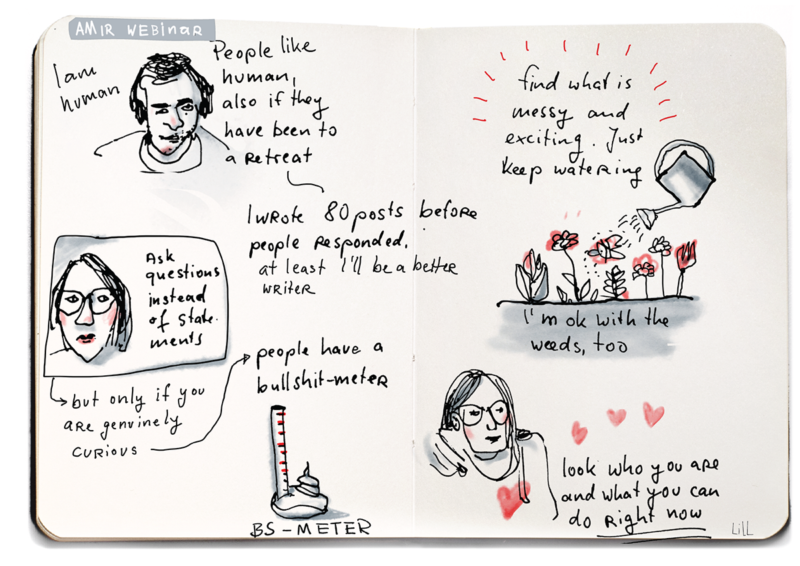 AMIR WEBINAR
I am
human
People like
human,
also if they
have been to
a RETREAT
I wrote 80 posts before
people responded.
at least I'll be a better
writer
Ask
questions
instead
of state-
ments
but only if you
are genuinely
curious
people have a
bullshit-meter
BS-METER
find what is
messy and
exciting. Just
keep watering
I'm ok with the
weeds, too
look who you are
and what you can
do right now
Lill